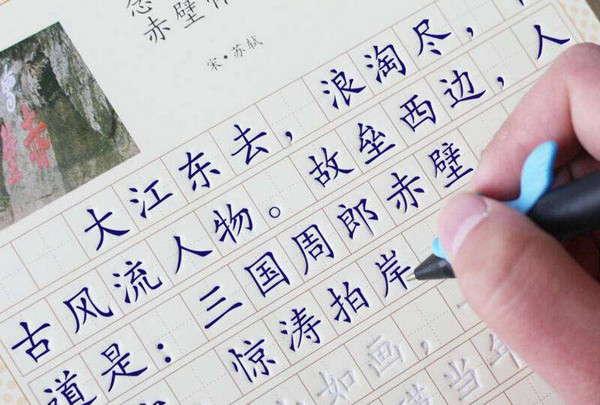 念
赤壁怀
宋·苏轼
大江东去，浪淘尽，
古风流人物。故垒西边，人
道是：三国周郎赤壁
惊涛拍岸
如画，一
当年